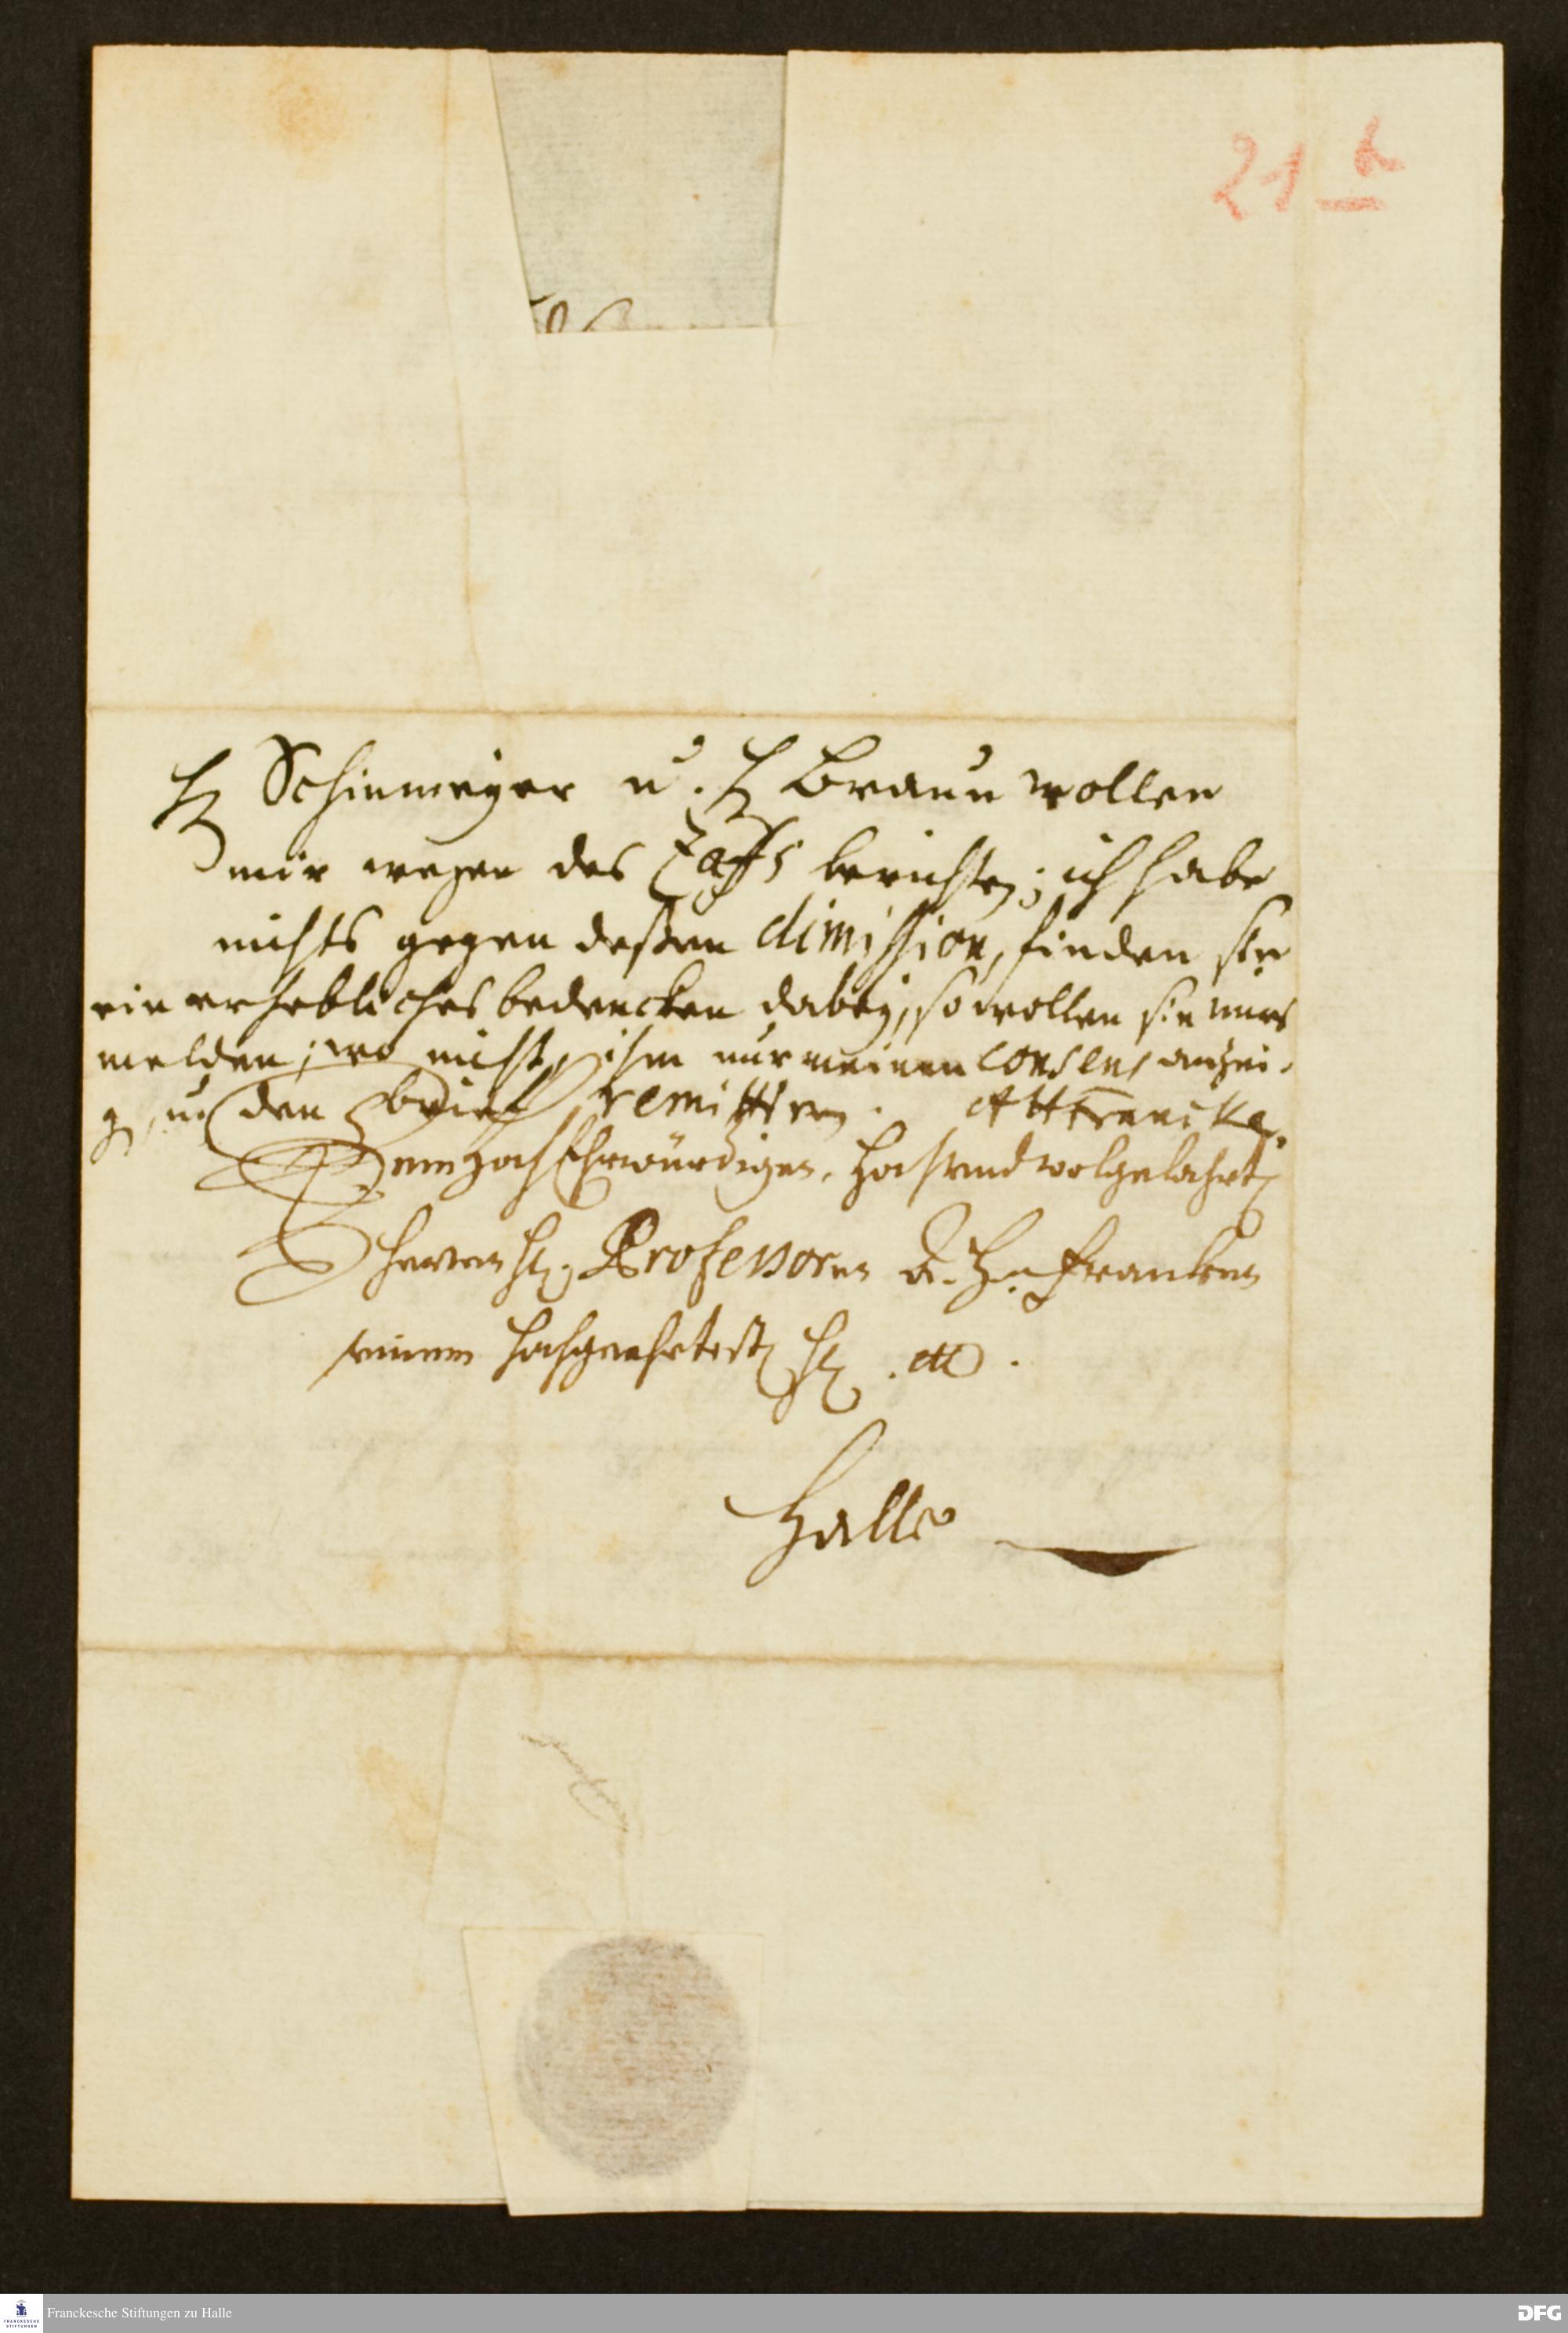 21
H Schinmeyer u. H Braun wollen
mir wegen des berichten; ich habe
nichts gegen deßen dimission, finden sie
ein erhebliches bedencken dabey, so wollen sie mirs
melden; wo nicht, ihm nur meinen consens anzei-
gen, u. den brief remittiren. AHFrancke.
Dem HochEhrwürdigen, Hoch und wolgelahrten
Herren H. Professoren A. H. Francken
meinem Hochgeehrtesten H.
Halle
Franckesche Stiftungen zu Halle
FRANCKESCHE
STIFTUNGEN
DFG